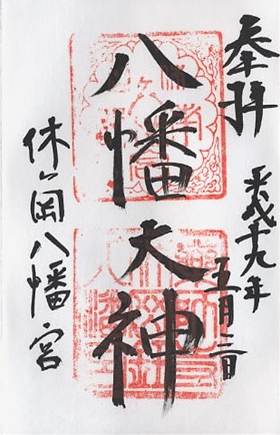 奉拝
平成十九年
五月二日
八幡大神
休ヶ岡八幡宮